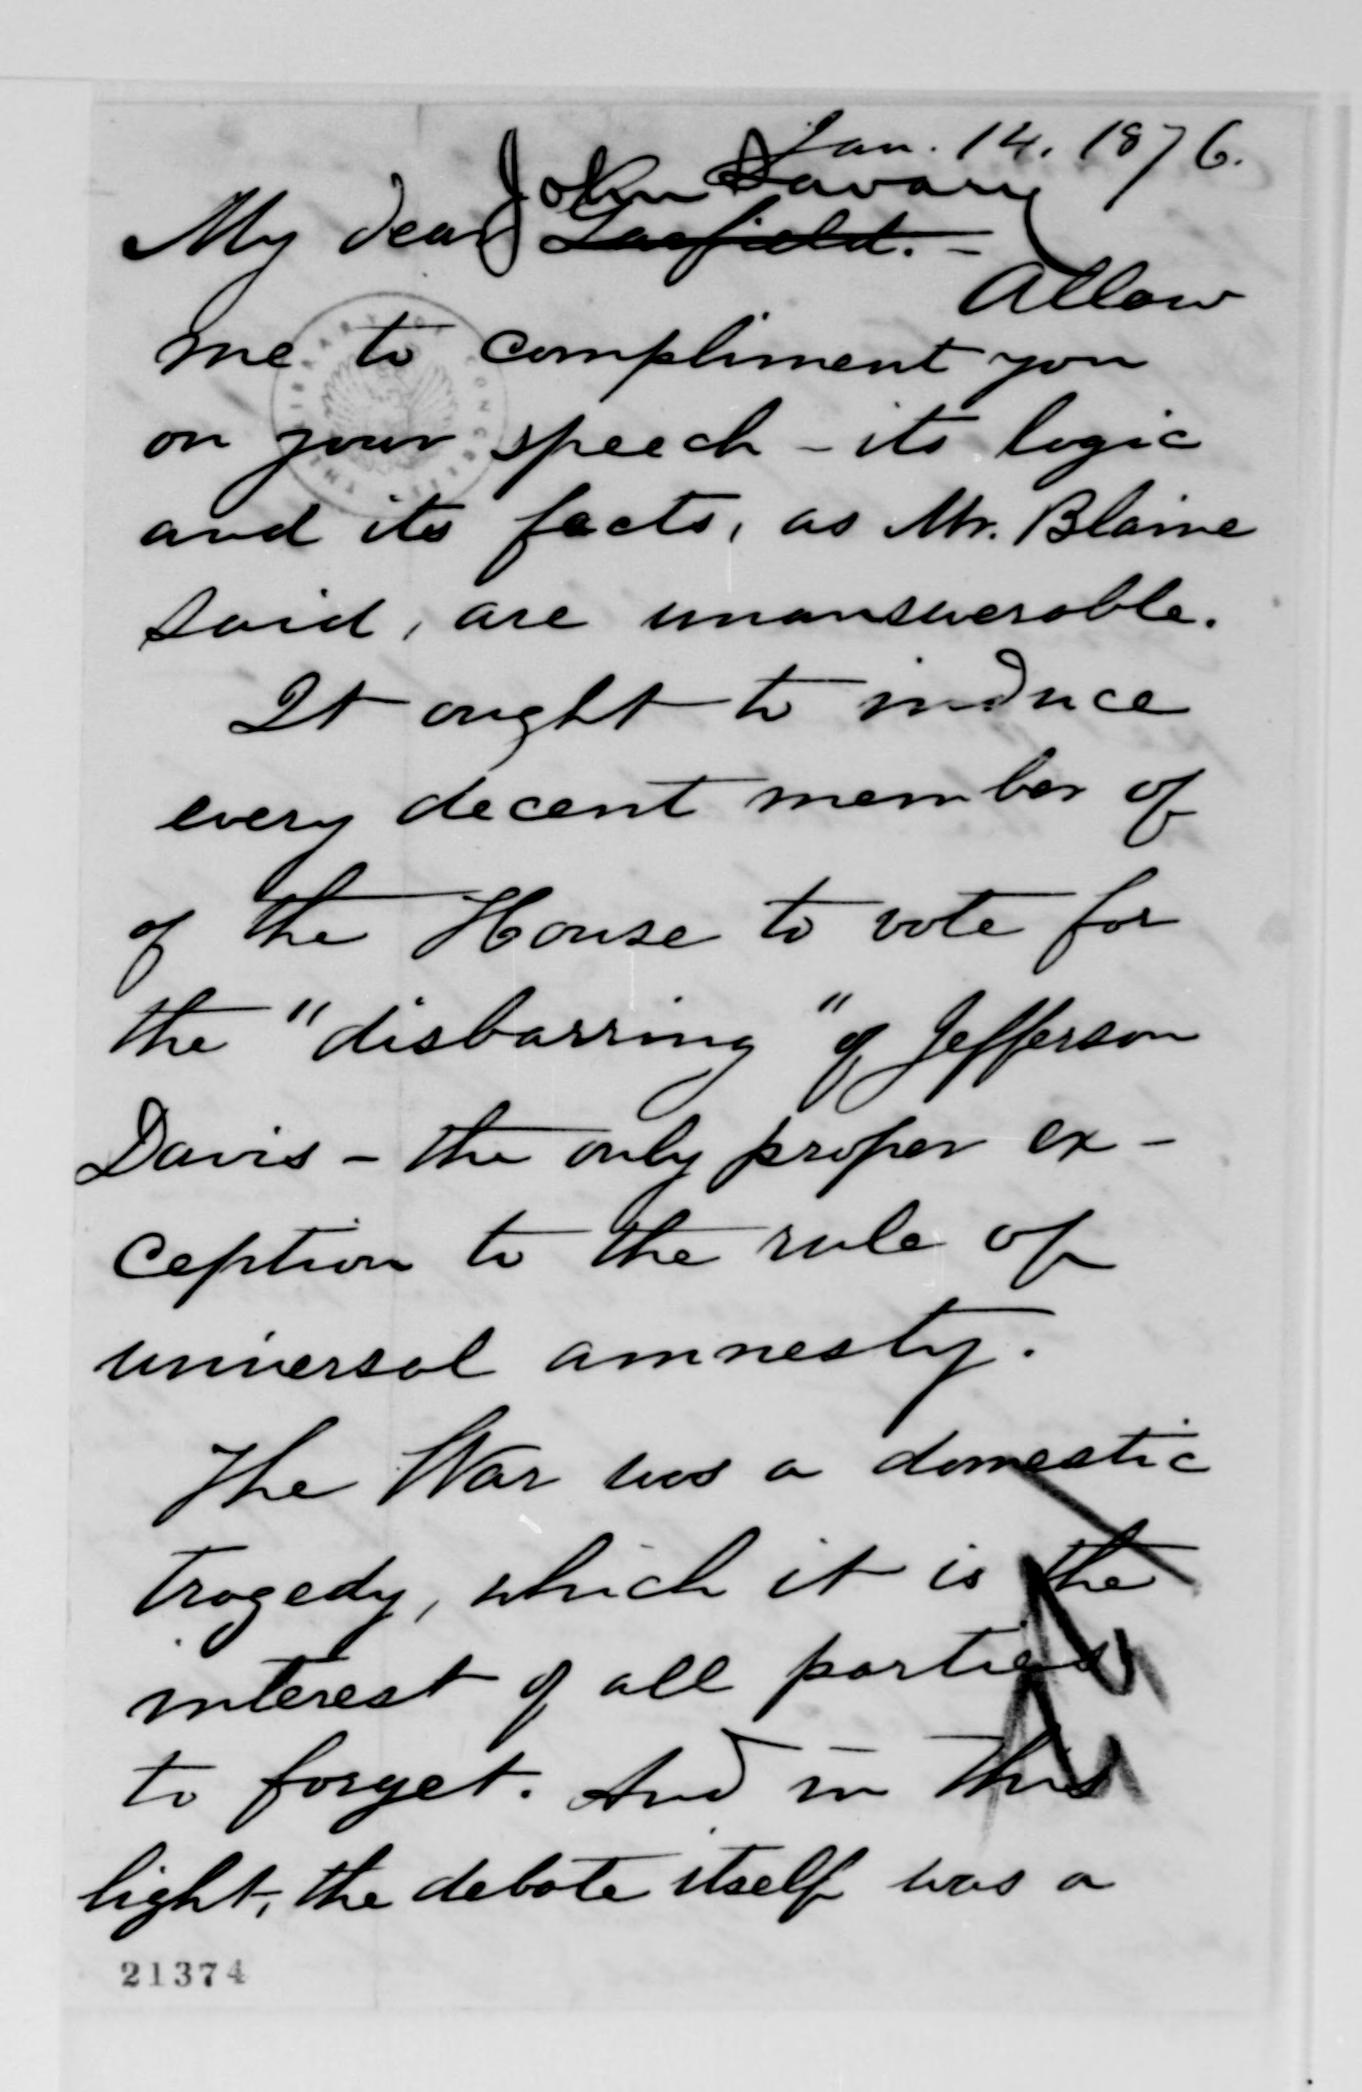 Jan. 14. 1876.
John Savary
My dear Garfield. -
Allow
me to compliment you
on your speech - its logic
and its facts, as Mr. Blaine
said, are unanswerable.
It ought to induce
every decent member of
of the House to vote for
the "disbarring" of Jefferson
Davis - the only proper ex-
ception to the rule of
universal amnesty.
The War was a domestic
tragedy, which it is the
interest of all parties
to forget. And in this
light, the debate itself was a
21374
THE LIBRARY OF CONGRESS